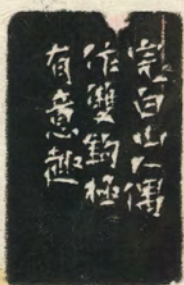 完白山人偶
作雙鈎極
有意趣